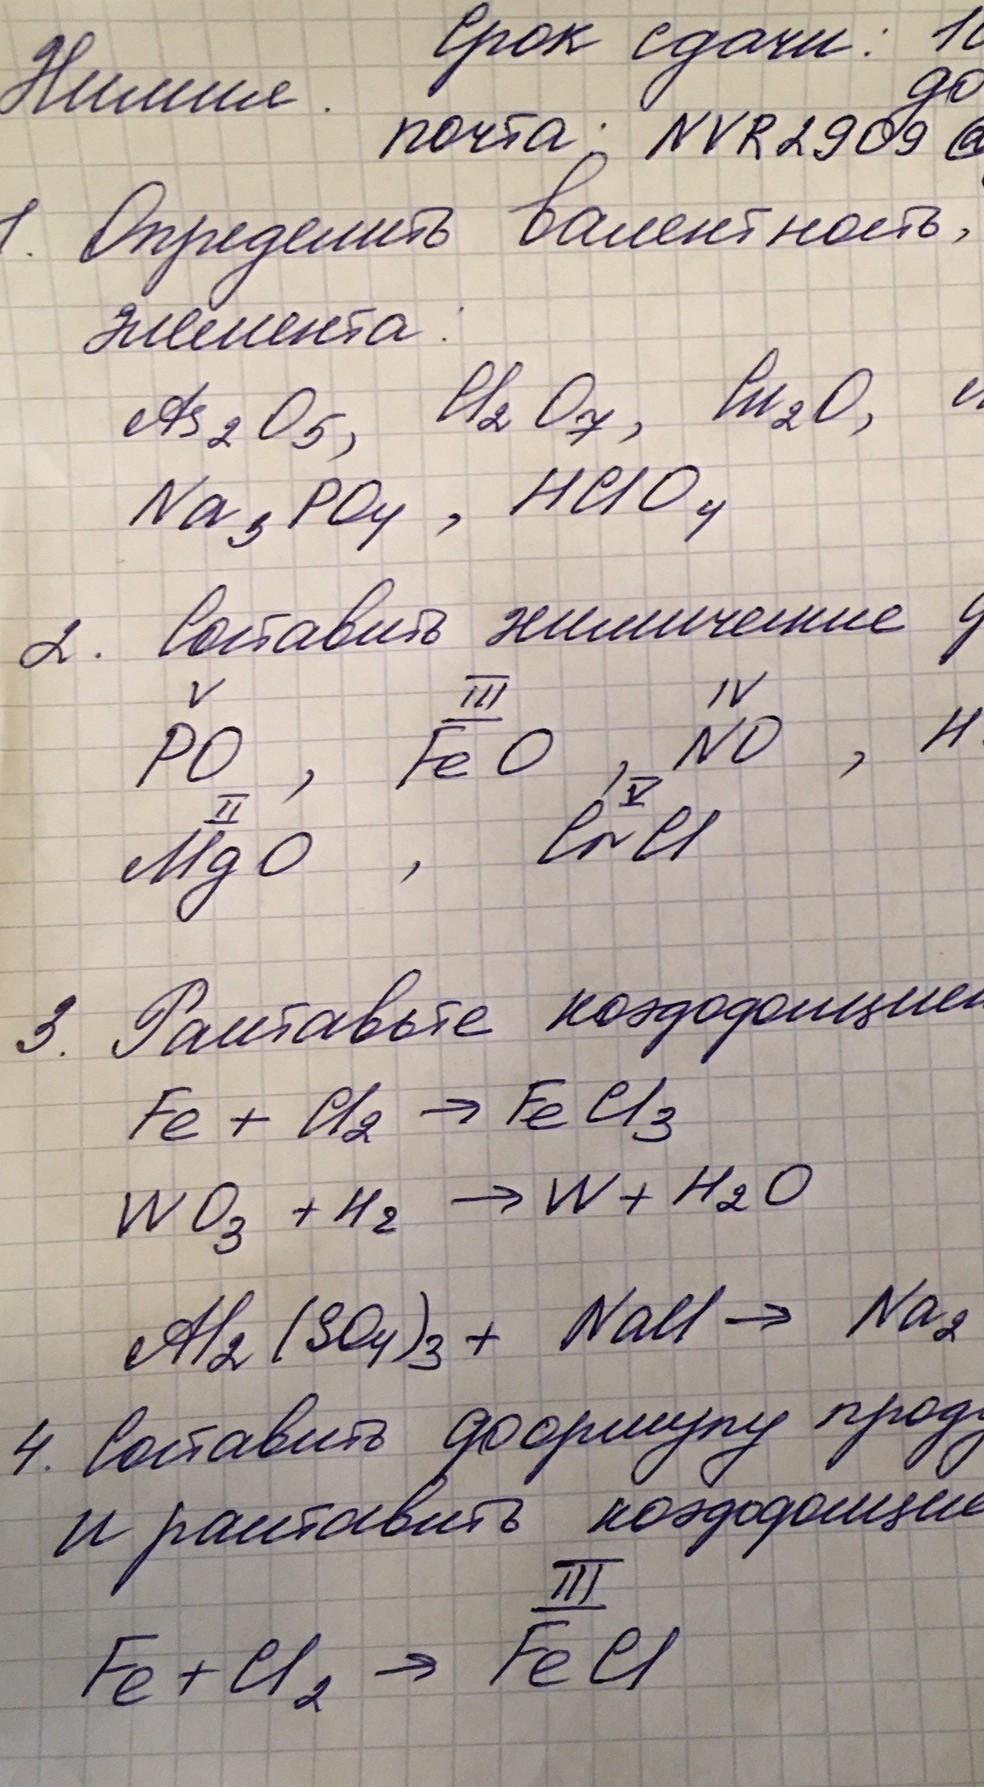 Химия. Срок сдачи: 10
до
почта: NVR2909@
1. Определить валентность,
элемента:
As₂O₅, Cl₂O₇, Cu₂O,
Na₃PO₄, HClO₄
2. Составить химические
V III IV
PO, FeO, NO, H
II V
MgO, CrCl
3. Расставьте коэффициен
Fe + Cl₂ → FeCl₃
WO₃ + H₂ → W + H₂O
Al₂(SO₄)₃ + NaCl → Na₂
4. Составить формулу проду
и расставить коэффицие
III
Fe + Cl₂ → FeCl